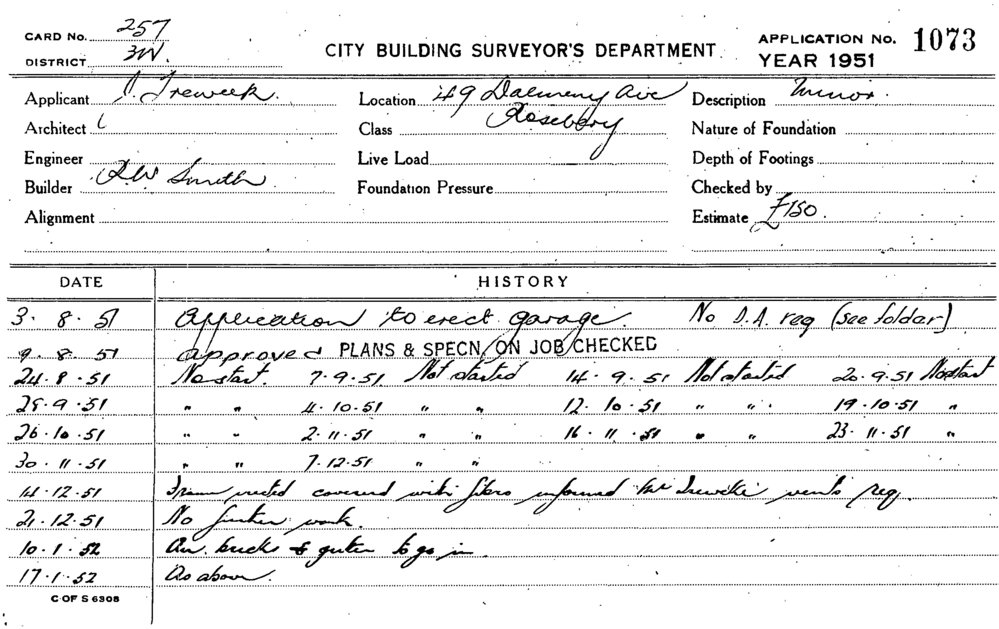 CARD No. 257
DISTRICT 3W.
CITY BUILDING SURVEYOR'S DEPARTMENT
APPLICATION No. 1073
YEAR 1951
Applicant J. Treweek. Location 49 Dalmeny Ave Description Minor.
Architect Class Rosebery Nature of Foundation
Engineer Live Load Depth of Footings
Builder R.W Smith Foundation Pressure Checked by
Alignment Estimate £150.
DATE HISTORY
3. 8. 51 Application to erect garage. No D.A. req (see folder)
9. 8. 51 approved PLANS & SPECN, ON JOB CHECKED
24. 8. 51 No start. 7-9-51. Not started 14. 9. 51 Not started 20. 9. 51 No start
25. 9. 51 " " 4. 10. 51 " " 12. 10. 51 " " 19. 10. 51 "
26. 10. 51 " " 2. 11. 51 " " 16. 11. 51 " " 23. 11. 51 "
30. 11. 51 " " 7. 12. 51 " "
14. 12. 51 Frame erected covered with fibro informed Mr vents req.
21. 12. 51 No further work.
10. 1. 52 bricks & gutter to go in.
17. 1. 52 As above.
C OF S 6308